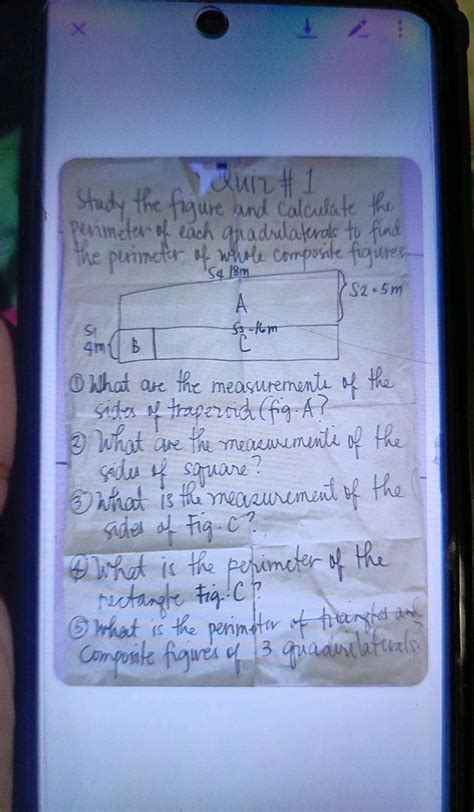 Quiz # 1
Study the figure and Calculate the
perimeter of each quadrilaterals to find
the perimeter of whole composite figures
S4 18m
S2 = 5m
A
S1
4m
B
S3 - 16m
C
① What are the measurements of the
sides of trapezoid (fig. A?
② What are the measurements of the
sides of square?
③ What is the measurement of the
sides of Fig. C?
④ What is the perimeter of the
rectangle Fig. C?
⑤ What is the perimeter of triangles and
Composite figures of 3 quadrilaterals?